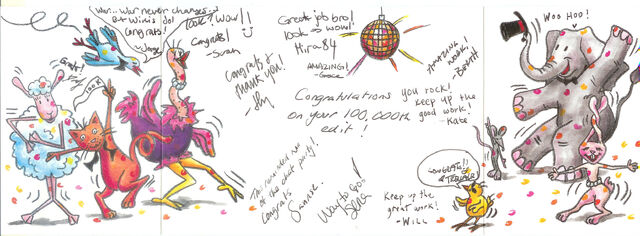 War... War never changes...
But Wikis do!
Congrats!
Great!
100K
Took? Wow!!
Congrats!
-Sarah
Great job bro!
100k so wow!
Hira84
AMAZING!
-Grace
Congrats &
thank you!
AMAZING
WORK!
Congratulations
on your 100,000th
edit!
you rock!
keep up the
good work!
-Kate
This reminded me
of the chat party!
Congrats
Way to Go!
Keep up the
great work!
-WILL
CONGRATS!!
WOO HOO!